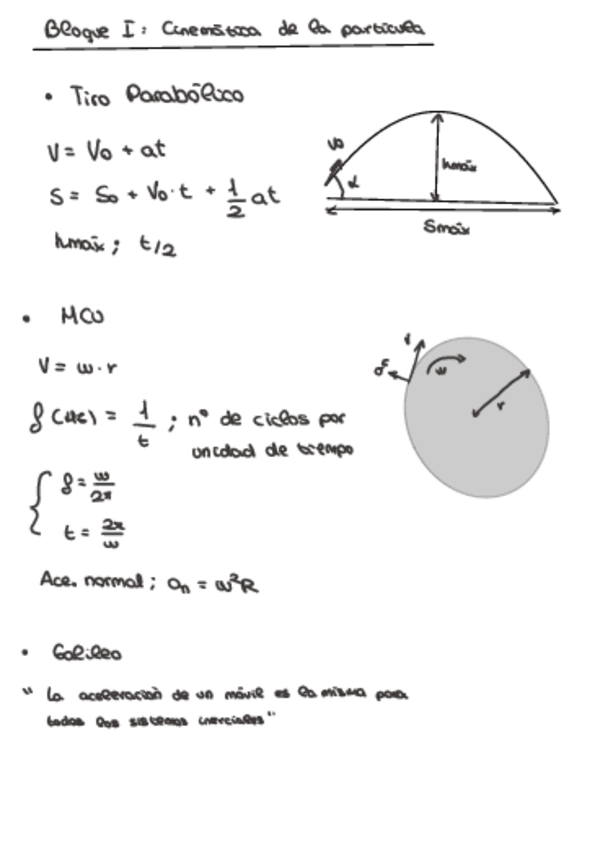 Bloque I: Cinemática de la partícula
• Tiro Parabólico
V = Vo + at
S = So + Vo·t + 1/2 at
hmáx ; t/2
Vo
α
hmáx
Smáx
• MCU
V = w·r
f (Hz) = 1/t ; nº de ciclos por
unidad de tiempo
{ f = w/2π
t = 2π/w
w
r
Ace. normal ; an = w²R
• Galileo
" La aceleración de un móvil es la misma para
todos los sistemas inerciales"